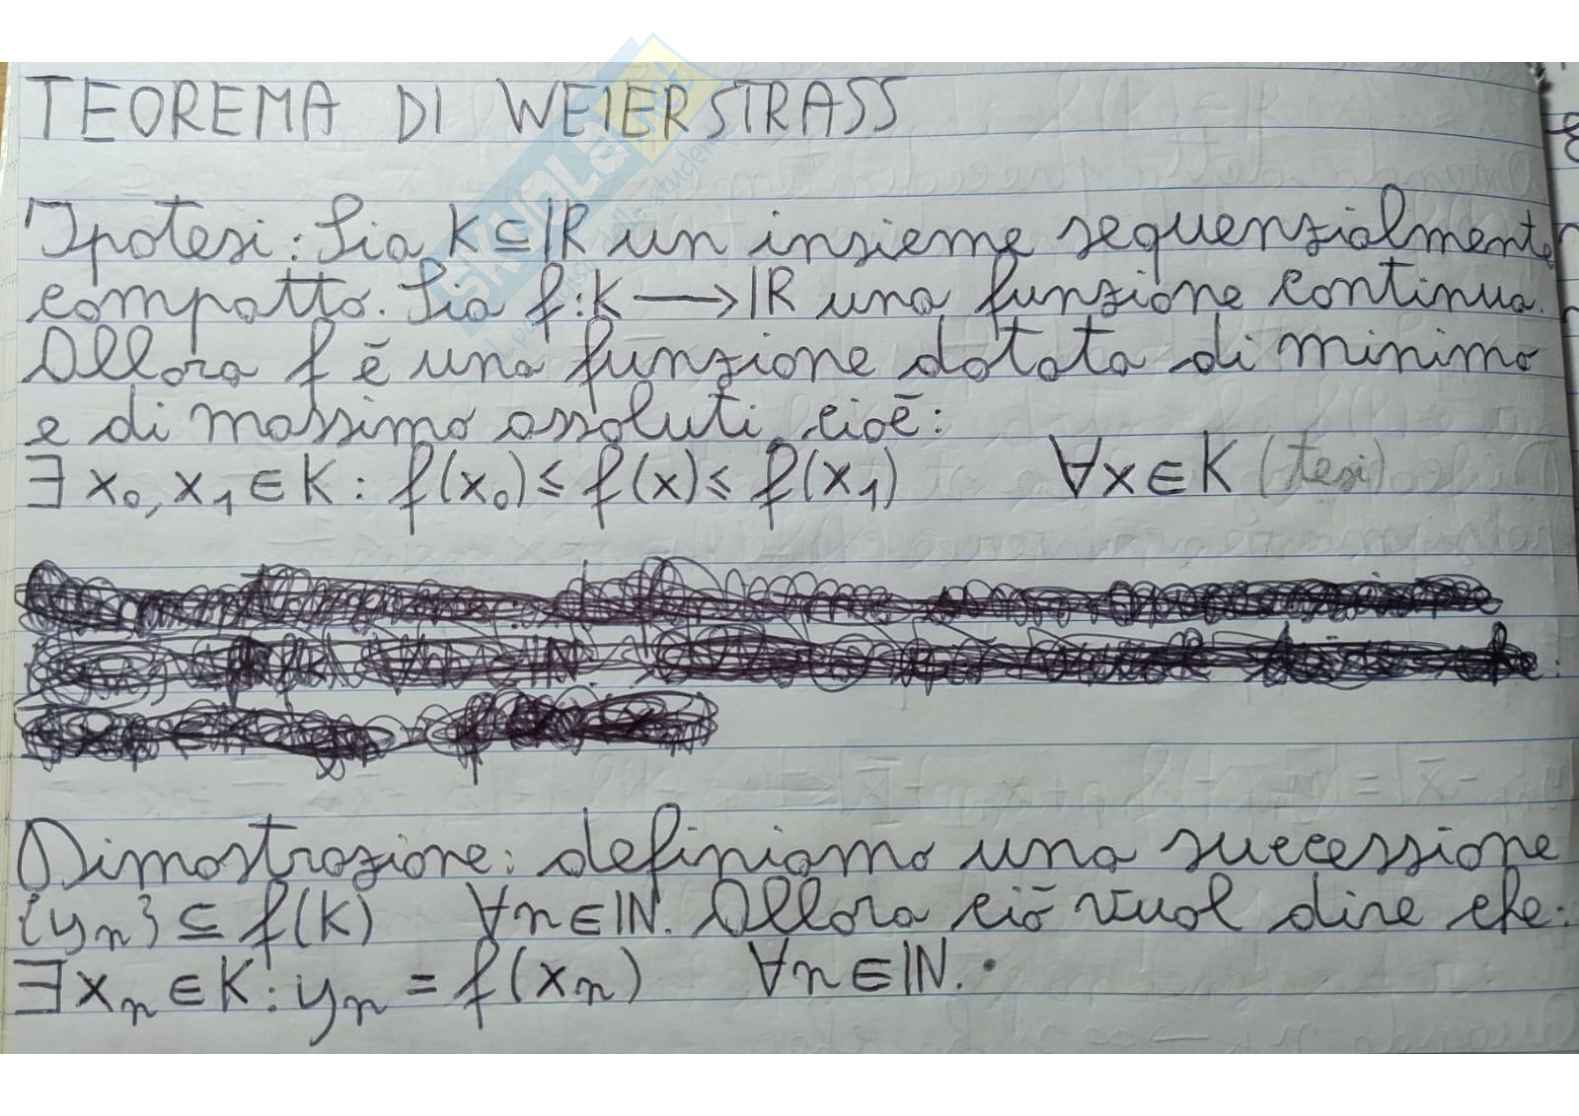 TEOREMA DI WEIERSTRASS
Ipotesi: Sia K ⊆ ℝ un insieme sequenzialmente
compatto. Sia f: K ⟶ ℝ una funzione continua.
Allora f è una funzione dotata di minimo
e di massimo assoluti, cioè:
∃ x₀, x₁ ∈ K : f(x₀) ≤ f(x) ≤ f(x₁) ∀x ∈ K (tesi)
Dimostrazione: definiamo una successione
{yₙ} ⊆ f(K) ∀n ∈ ℕ. Allora ciò vuol dire che:
∃ xₙ ∈ K : yₙ = f(xₙ) ∀n ∈ ℕ.